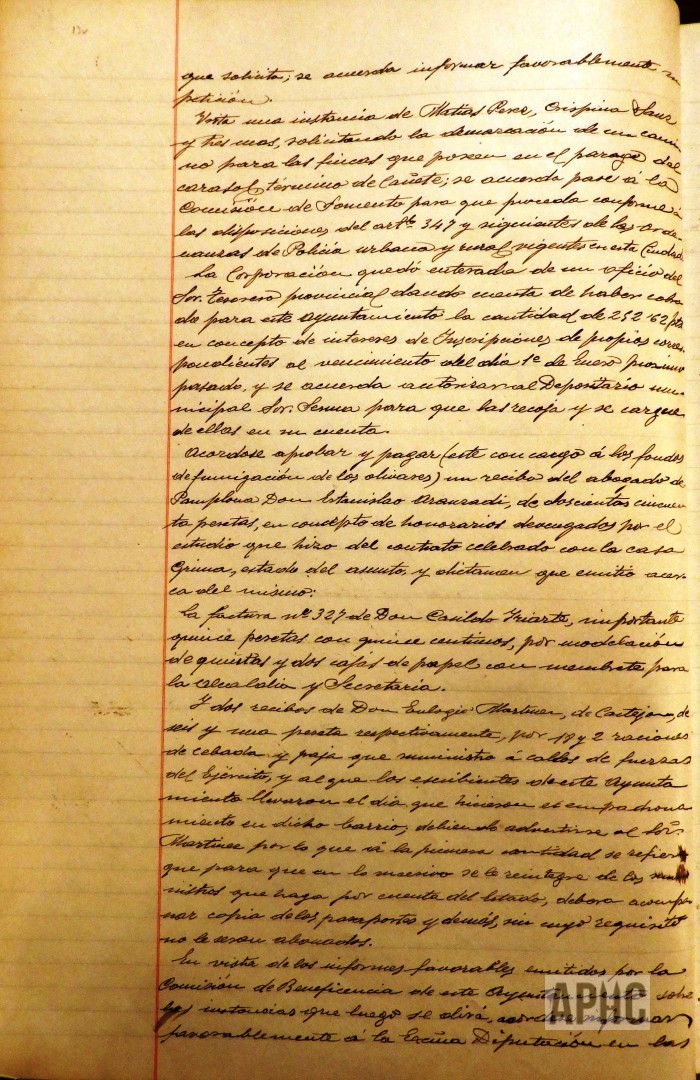 que solicita; se acuerda informar favorablemente su
petición.
Vista una instancia de Matias Perez, Crispina Sanz
y tres mas, solicitando la demarcación de un cami
no para las fincas que poseen en el parage del
carasol término de Cañete; se acuerda pase á la
Comisión de Fomento para que proceda conforme á
las disposiciones del artº 347 y siguientes de las Orde
nanzas de Policía urbana y rural vigentes en esta Ciudad.
La Corporación quedó enterada de un oficio del
Sor. Tesorero provincial dando cuenta de haber cobra
do para este Ayuntamiento la cantidad de 252'62 ptas
en concepto de intereses de Inscripciones de propios corres
pondientes al vencimiento del día 1º de Enero proximo
pasado, y se acuerda autorizar al Depositario mu
nicipal Sor. Senna para que las recoja y se cargue
de ellas en su cuenta.
Acordose aprobar y pagar (este con cargo á los fondos
de fumigación de los olivares) un recibo del abogado de
Pamplona Don Estanislao Aranzadi, de doscientas cincuen
ta pesetas, en concepto de honorarios devengados por el
estudio que hizo del contrato celebrado con la casa
Grima, estado del asunto, y dictamen que emitió acer
ca del mismo:
La factura nº 327 de Don Casildo Iriarte, importante
quince pesetas con quince centimos, por modelación
de quintas y dos cajas de papel con membrete para
la Alcaldia y Secretaría.
Y dos recibos de Don Eulogio Martinez, de Castejon, de
seis y una peseta respectivamente, por 18 y 2 raciones
de cebada y paja que suministró á cablos de fuerzas
del Ejército, y al que los escribientes de este Ayunta
miento llevaron el día que hicieron el empadrona
miento en dicho barrio, debiendo advertirse al Sor.
Martinez por lo que á la primera cantidad se refiere
que para que en lo sucesivo se le reintegre de los sumi
nistros que haga por cuenta del Estado, debera acompa
ñar copia de los pasaportes y demás, sin cuyo requisito
no le seran abonados.
En vista de los informes favorables emitidos por la
Comisión de Beneficencia de este Ayuntamiento sobre
las instancias que luego se dirá, acordose informar
favorablemente á la Excma Diputación en las
APHC